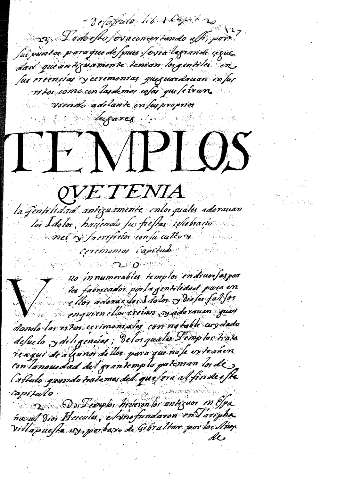 127
Todo esto se va contentando assi, por
sus puntos para que despues se vea la grande ceguedad
que antiguamente tenian los gentiles en
sus creencias y ceremonias que guardavan en sus
ritos como con las demas cosas que se iran
viendo adelante en sus proprios
lugares.
TEMPLOS
QVE TENIA
la gentilidad antiguamente en los quales adoravan
los Idolos, haziendo sus fiestas celebracio
nes y sacrificios con su culto y
ceremonias capitulo
20
Vuo innumerables templos en diversas par
tes fabricados por la gentilidad para en
ellos adorar los Idolos y Dioses falsos
en quien ellos creian y adoravan guar
dando los ritos cerimoniales con notable cuydado
desuelo y deligencia, de los quales Templos trata
re aqui de algunos dellos para que no se extrañen
con la novedad del gran templo
quando tratemos del que sera al fin de este
capitulo.
Dos Templos hizieron los antiguos en Espa
ña al dios Hercules, el uno fundaron en
villa puesta por bajo de Gibraltar por los
de